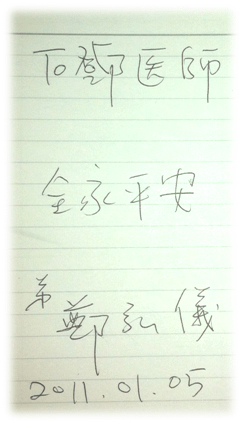 To 鄧医師
全家平安
弟 鄭弘儀
2011.01.05